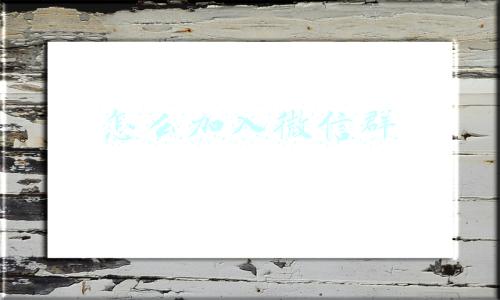 怎么加入微信群